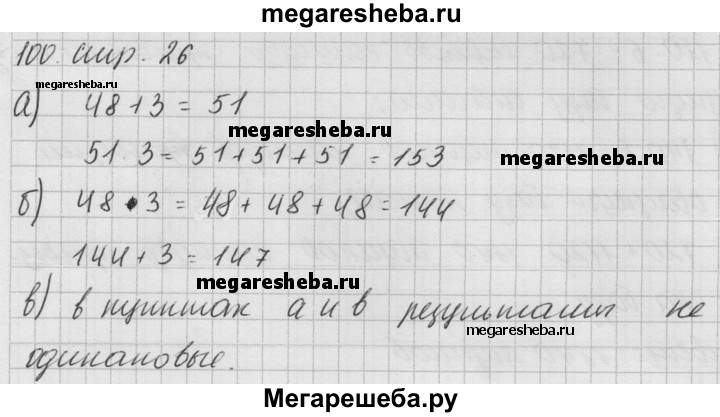 megaresheba.ru
100. стр. 26
megaresheba.ru
а) 48 + 3 = 51
megaresheba.ru
51 · 3 = 51 + 51 + 51 = 153
megaresheba.ru
б) 48 · 3 = 48 + 48 + 48 = 144
144 + 3 = 147
megaresheba.ru
в) в пунктах а и в результаты не
megaresheba.ru
одинановые.
Мегарешеба.ру